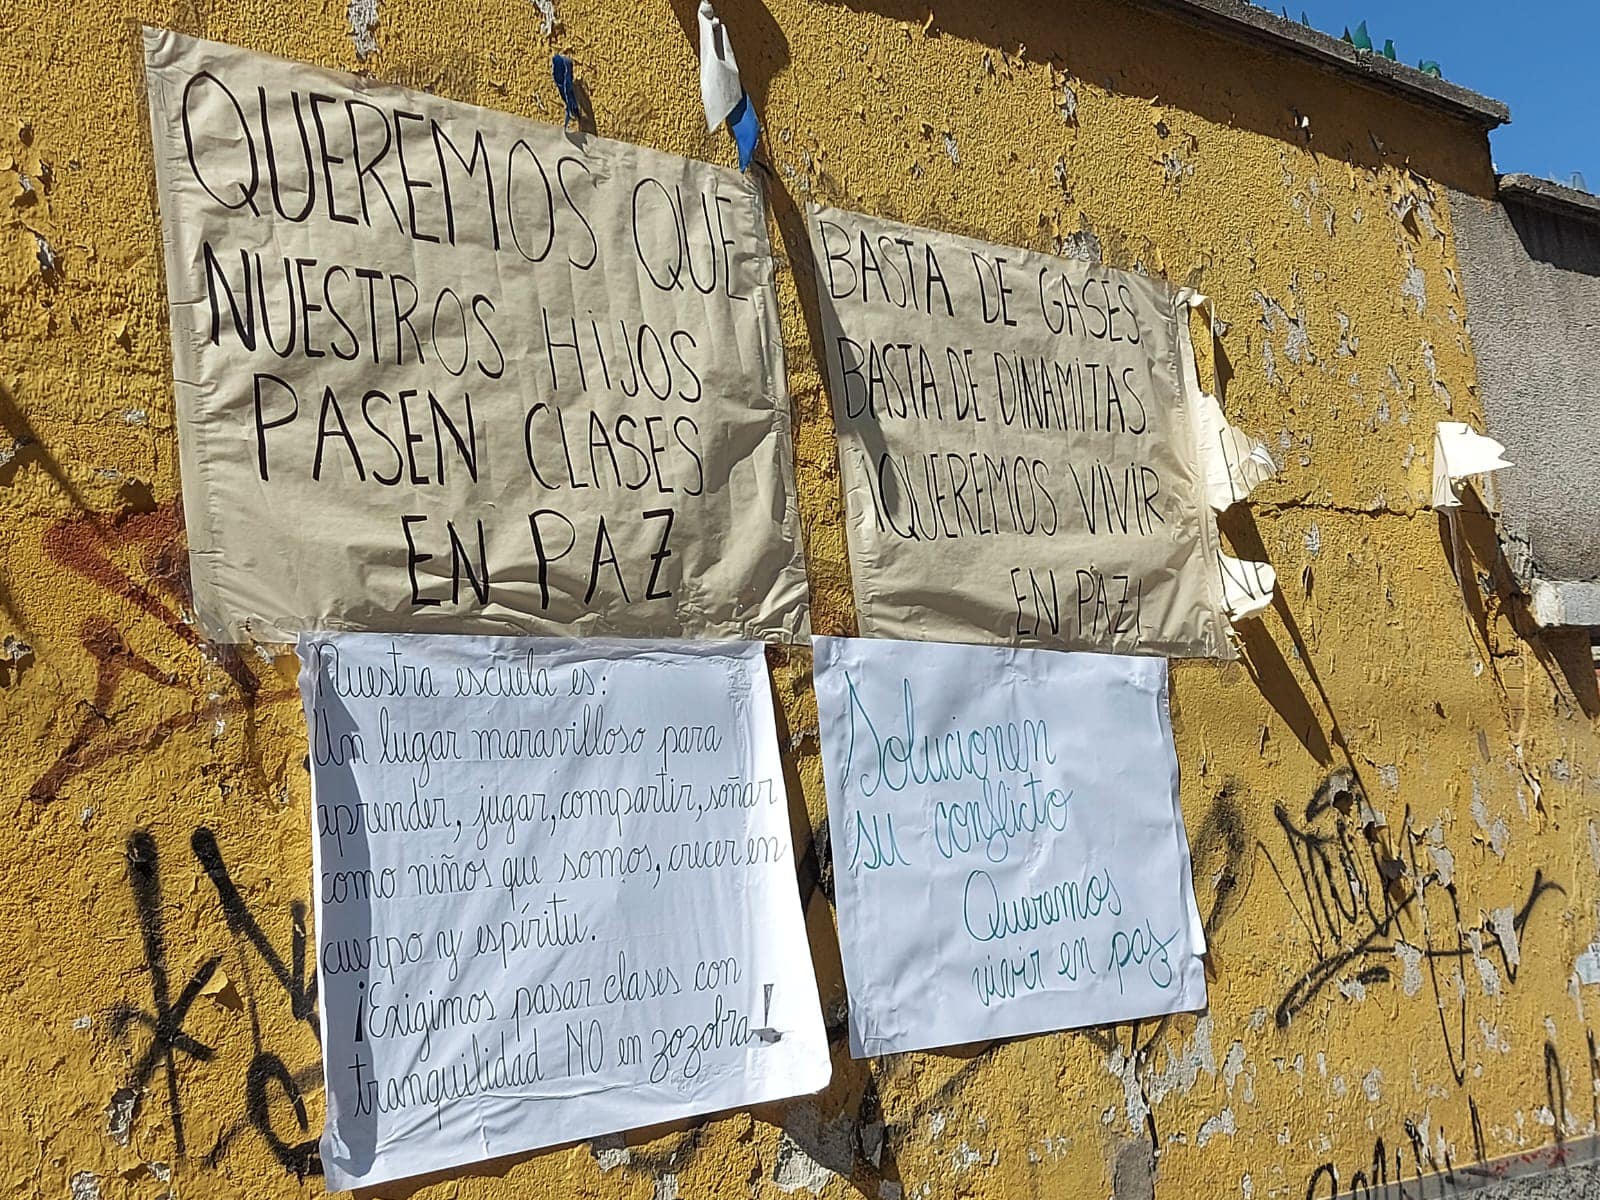 QUEREMOS QUE
NUESTROS HIJOS
PASEN CLASES
EN PAZ
BASTA DE GASES
BASTA DE DINAMITAS.
¡QUEREMOS VIVIR
EN PAZ!
Nuestra escuela es:
Un lugar maravilloso para
aprender, jugar, compartir, soñar
como niños que somos, crecer en
cuerpo y espíritu.
¡Exigimos pasar clases con
tranquilidad NO en zozobra!
Solucionen
su conflicto
Queremos
vivir en paz